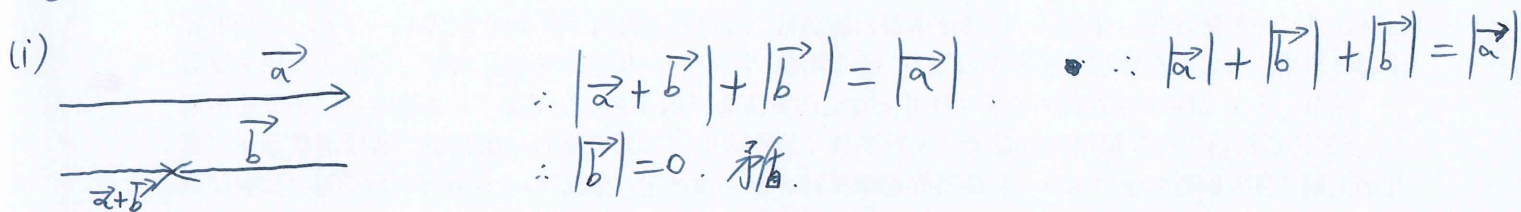 (i)
$\overrightarrow{a}$
$\overrightarrow{b}$
$\overrightarrow{a}+\overrightarrow{b}$
∴ $|\overrightarrow{a}+\overrightarrow{b}|+|\overrightarrow{b}|=|\overrightarrow{a}|$
∴ $|\overrightarrow{a}|+|\overrightarrow{b}|+|\overrightarrow{b}|=|\overrightarrow{a}|$
∴ $|\overrightarrow{b}|=0$. 矛盾